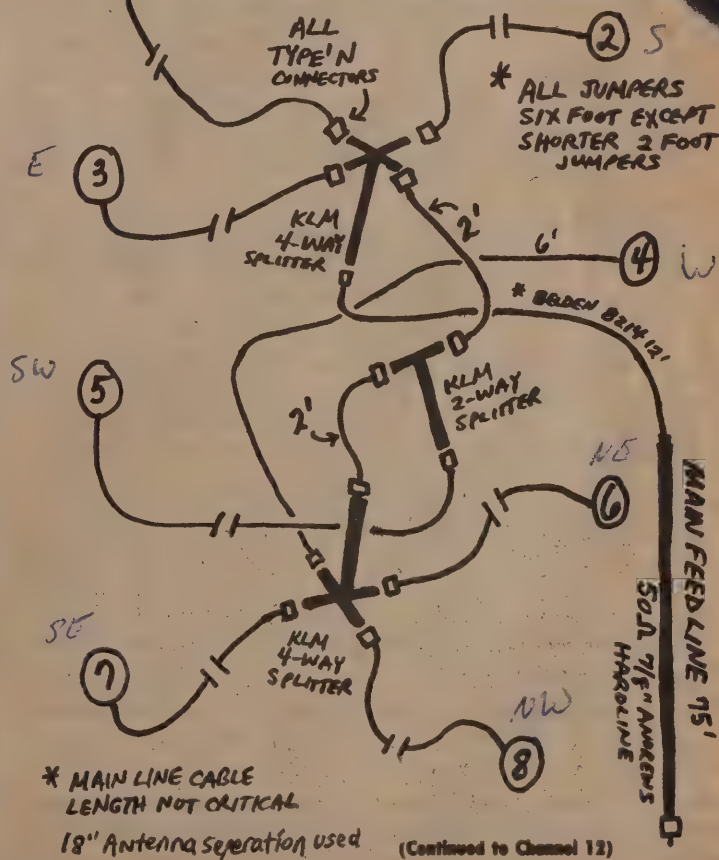 ALL
TYPE'N
CONNECTORS
2 S
* ALL JUMPERS
SIX FOOT EXCEPT
SHORTER 2 FOOT
JUMPERS
E 3
KLM
4-WAY
SPLITTER
2'
6'
4 W
* BELDEN 8214 12'
SW 5
2'
KLM
2-WAY
SPLITTER
NE
6
MAIN FEED LINE 75'
50Ω 7/8" ANDREWS
HARDLINE
SE
7
KLM
4-WAY
SPLITTER
NW
8
* MAIN LINE CABLE
LENGTH NOT CRITICAL
18" Antenna seperation used
(Continued to Channel 12)